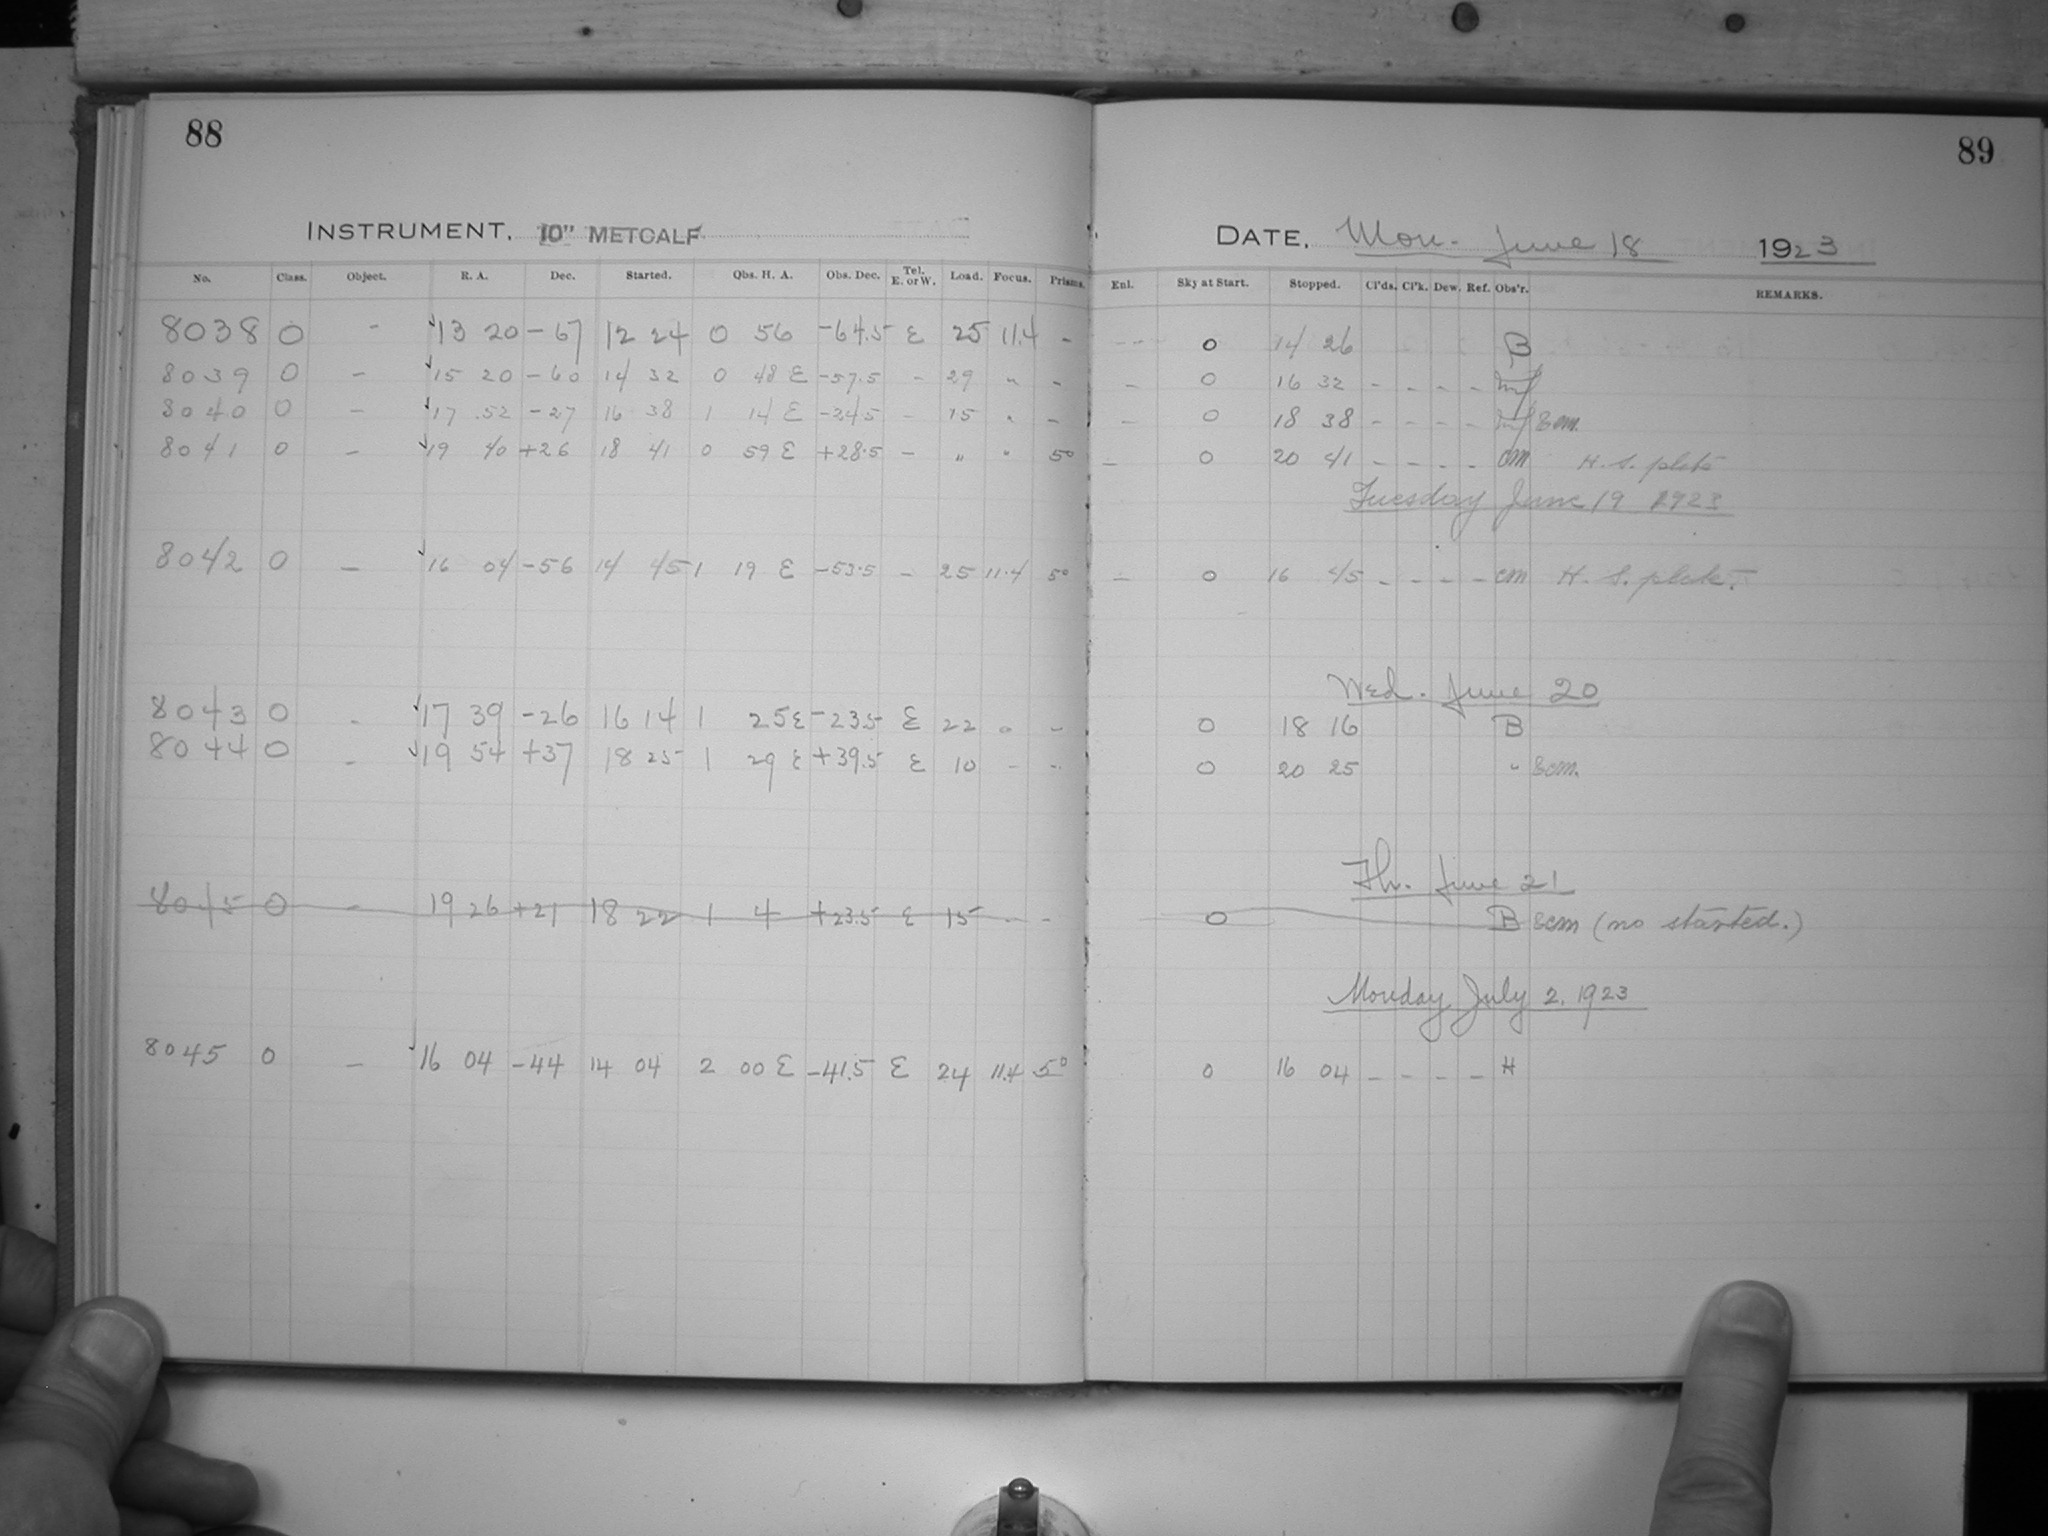 88
INSTRUMENT. 10" METCALF
No. Class. Object. R. A. Dec. Started. Obs. H. A. Obs. Dec. Tel. E. or W. Load. Focus. Prisms.
8038 0 - 13 20 -67 12 24 0 56 -64.5 E 25 11.4 -
8039 0 - 15 20 -60 14 32 0 48 E -57.5 - 29 " -
8040 0 - 17 52 -27 16 38 1 14 E -24.5 - 15 " -
8041 0 - 19 40 +26 18 41 0 59 E +28.5 - " " 5°
8042 0 - 16 04 -56 14 45 1 19 E -53.5 - 25 11.4 5°
8043 0 - 17 39 -26 16 14 1 25 E -23.5 E 22 - -
8044 0 - 19 54 +37 18 25 1 29 E +39.5 E 10 - -
8045 0 - 19 26 +21 18 22 1 4 +23.5 E 15 - -
8045 0 - 16 04 -44 14 04 2 00 E -41.5 E 24 11.4 5°
89
DATE. Mon. June 18 1923
Enl. Sky at Start. Stopped. Cl'ds. Cl'k. Dew. Ref. Obs'r. REMARKS.
-- 0 14 26 B
- 0 16 32 - - - -
- 0 18 38 - - - - &cm.
- 0 20 41 - - - - cm H. S. plate
Tuesday June 19 1923
- 0 16 45 - - - - cm H. S. plate.
Wed. June 20
0 18 16 B
0 20 25 " &cm.
Th. June 21
0 B &cm (no started.)
Monday July 2, 1923
0 16 04 - - - - H